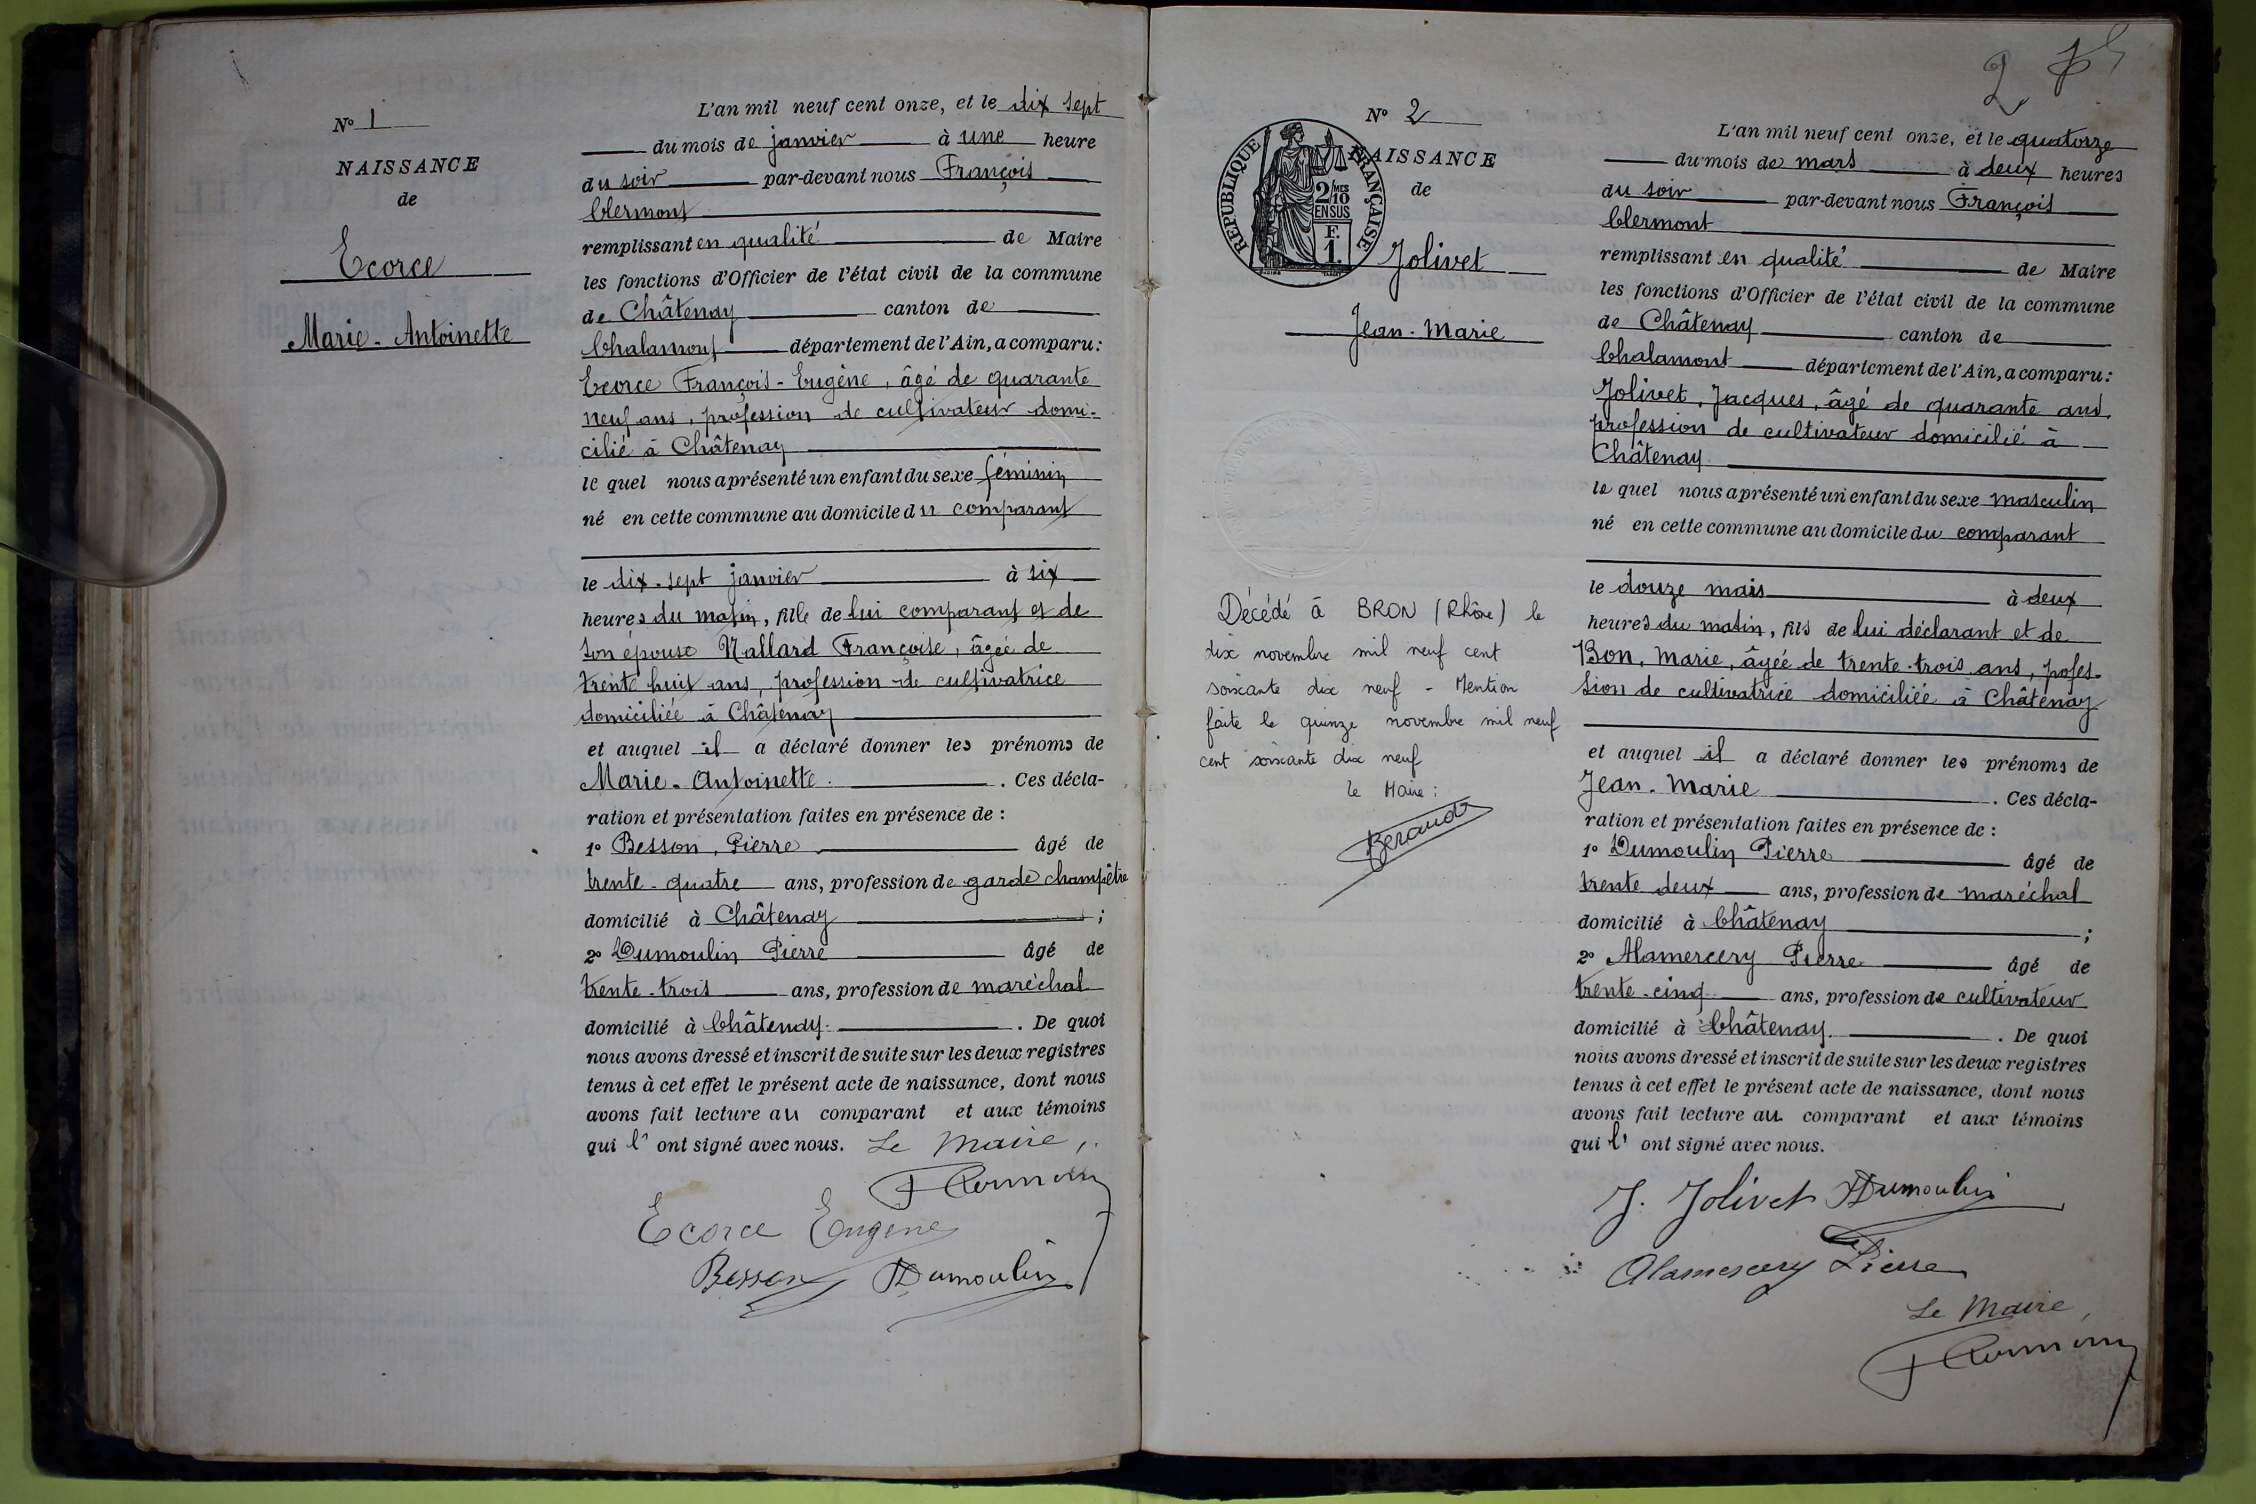 N° 1
NAISSANCE
de
Ecorce
Marie-Antoinette
L'an mil neuf cent onze, et le dix sept
du mois de janvier à une heure
du soir par-devant nous François
Clermont
remplissant en qualité de Maire
les fonctions d'Officier de l'état civil de la commune
de Châtenay canton de
Chalamont département de l'Ain, a comparu:
Ecorce François-Eugène, âgé de quarante
neuf ans, profession de cultivateur domi-
cilié à Châtenay
le quel nous a présenté un enfant du sexe féminin
né en cette commune au domicile du comparant
le dix-sept janvier à six
heures du matin, fille de lui comparant et de
son épouse Nallard Françoise, âgée de
trente huit ans, profession de cultivatrice
domiciliée à Châtenay
et auquel il a déclaré donner les prénoms de
Marie-Antoinette. Ces décla-
ration et présentation faites en présence de :
1° Besson, Pierre âgé de
trente-quatre ans, profession de garde champêtre
domicilié à Châtenay ;
2° Dumoulin Pierre âgé de
trente-trois ans, profession de maréchal
domicilié à Châtenay. De quoi
nous avons dressé et inscrit de suite sur les deux registres
tenus à cet effet le présent acte de naissance, dont nous
avons fait lecture au comparant et aux témoins
qui l' ont signé avec nous. Le Maire,
F Clermont
Ecorce Eugène
Besson Dumoulin
2
N° 2
NAISSANCE
de
REPUBLIQUE FRANÇAISE
2/10 MES
EN SUS
F.
1.
Jolivet
Jean-Marie
Décédé à BRON (Rhône) le
dix novembre mil neuf cent
soixante dix neuf - Mention
faite le quinze novembre mil neuf
cent soixante dix neuf
le Maire :
Beraud
L'an mil neuf cent onze, et le quatorze
du mois de mars à deux heures
du soir par-devant nous François
Clermont
remplissant en qualité de Maire
les fonctions d'Officier de l'état civil de la commune
de Châtenay canton de
Chalamont département de l'Ain, a comparu:
Jolivet, Jacques, âgé de quarante ans,
profession de cultivateur domicilié à
Châtenay
le quel nous a présenté un enfant du sexe masculin
né en cette commune au domicile du comparant
le douze mars à deux
heures du matin, fils de lui déclarant et de
Bon, Marie, âgée de trente-trois ans, profes-
sion de cultivatrice domiciliée à Châtenay
et auquel il a déclaré donner les prénoms de
Jean-Marie. Ces décla-
ration et présentation faites en présence de :
1° Dumoulin Pierre âgé de
trente deux ans, profession de maréchal
domicilié à Châtenay ;
2° Alamercery Pierre âgé de
trente-cinq ans, profession de cultivateur
domicilié à Châtenay. De quoi
nous avons dressé et inscrit de suite sur les deux registres
tenus à cet effet le présent acte de naissance, dont nous
avons fait lecture au comparant et aux témoins
qui l' ont signé avec nous.
J. Jolivet Dumoulin
Alamercery Pierre
Le Maire,
F Clermont